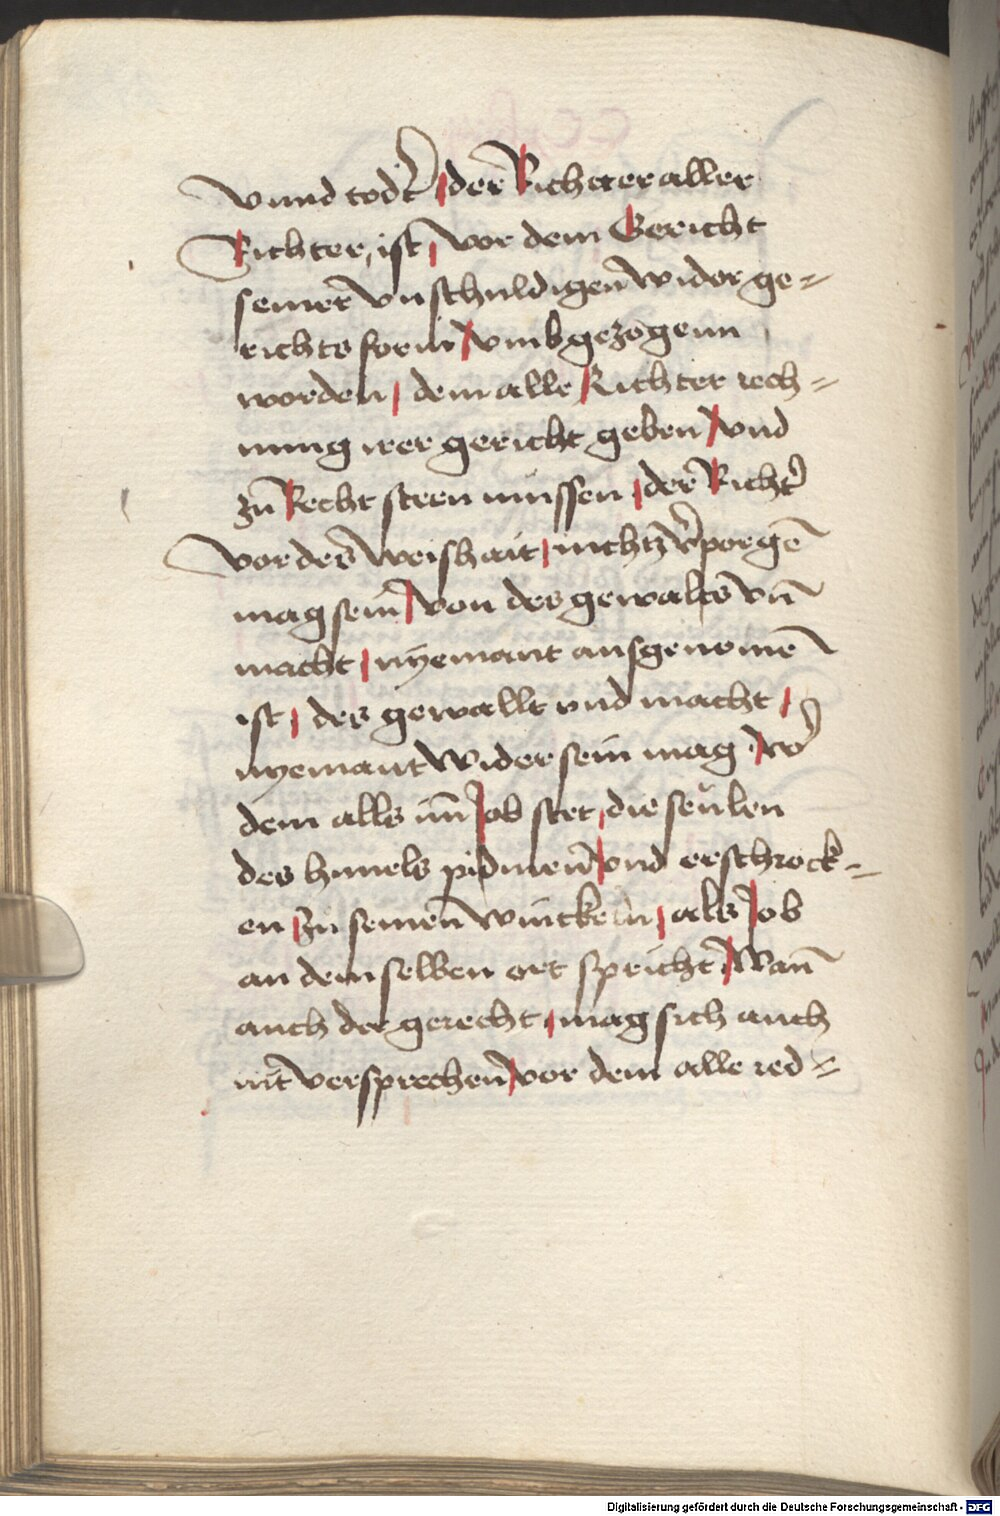 vnnd todt̕ / der̄ Richtter aller
Richter, ist / vor dem Gericht
seiner vnschuldigen̄ wider ge=
richts form / vmbgezogenn
worden / dem alle Richter rech=
nung irer gericht geben / vnd
zū Recht steen mussen / der̄ Richt̕
vor des weishait / nichtz v̕porgē
mag sein / von des gewalts vn̄
macht / nyemant ausgenomē
ist / des gewallt vnd macht /
nyemant wider sein mag / vo᷑
dem alls im̄ Job stet / die seulen
des himels pidmen̄ / vnd erschrock=
en / zu seinen̄ winckeln / als Job
an demselben ort spricht / Wan̄
auch der gerecht / mag sich auch
nit versprechen̄ / vor dem alle red=
Digitalisierung gefördert durch die Deutsche Forschungsgemeinschaft - DFG